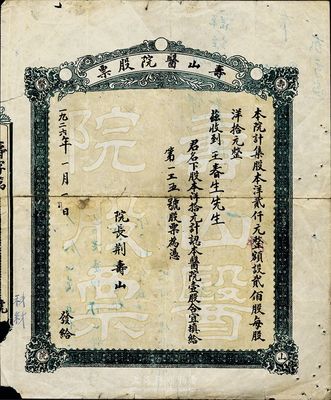 壽山醫院股票
本院計集股本洋貳仟元整額設貳佰股每股
洋拾元整
茲收到王春生先生
君名下股本洋拾元計認本醫院壹股合宜填給
第一二五號股票為憑
院長荆壽山
一九二六年一月一日 發給
壽山醫
院股票
壽
山
醫
院